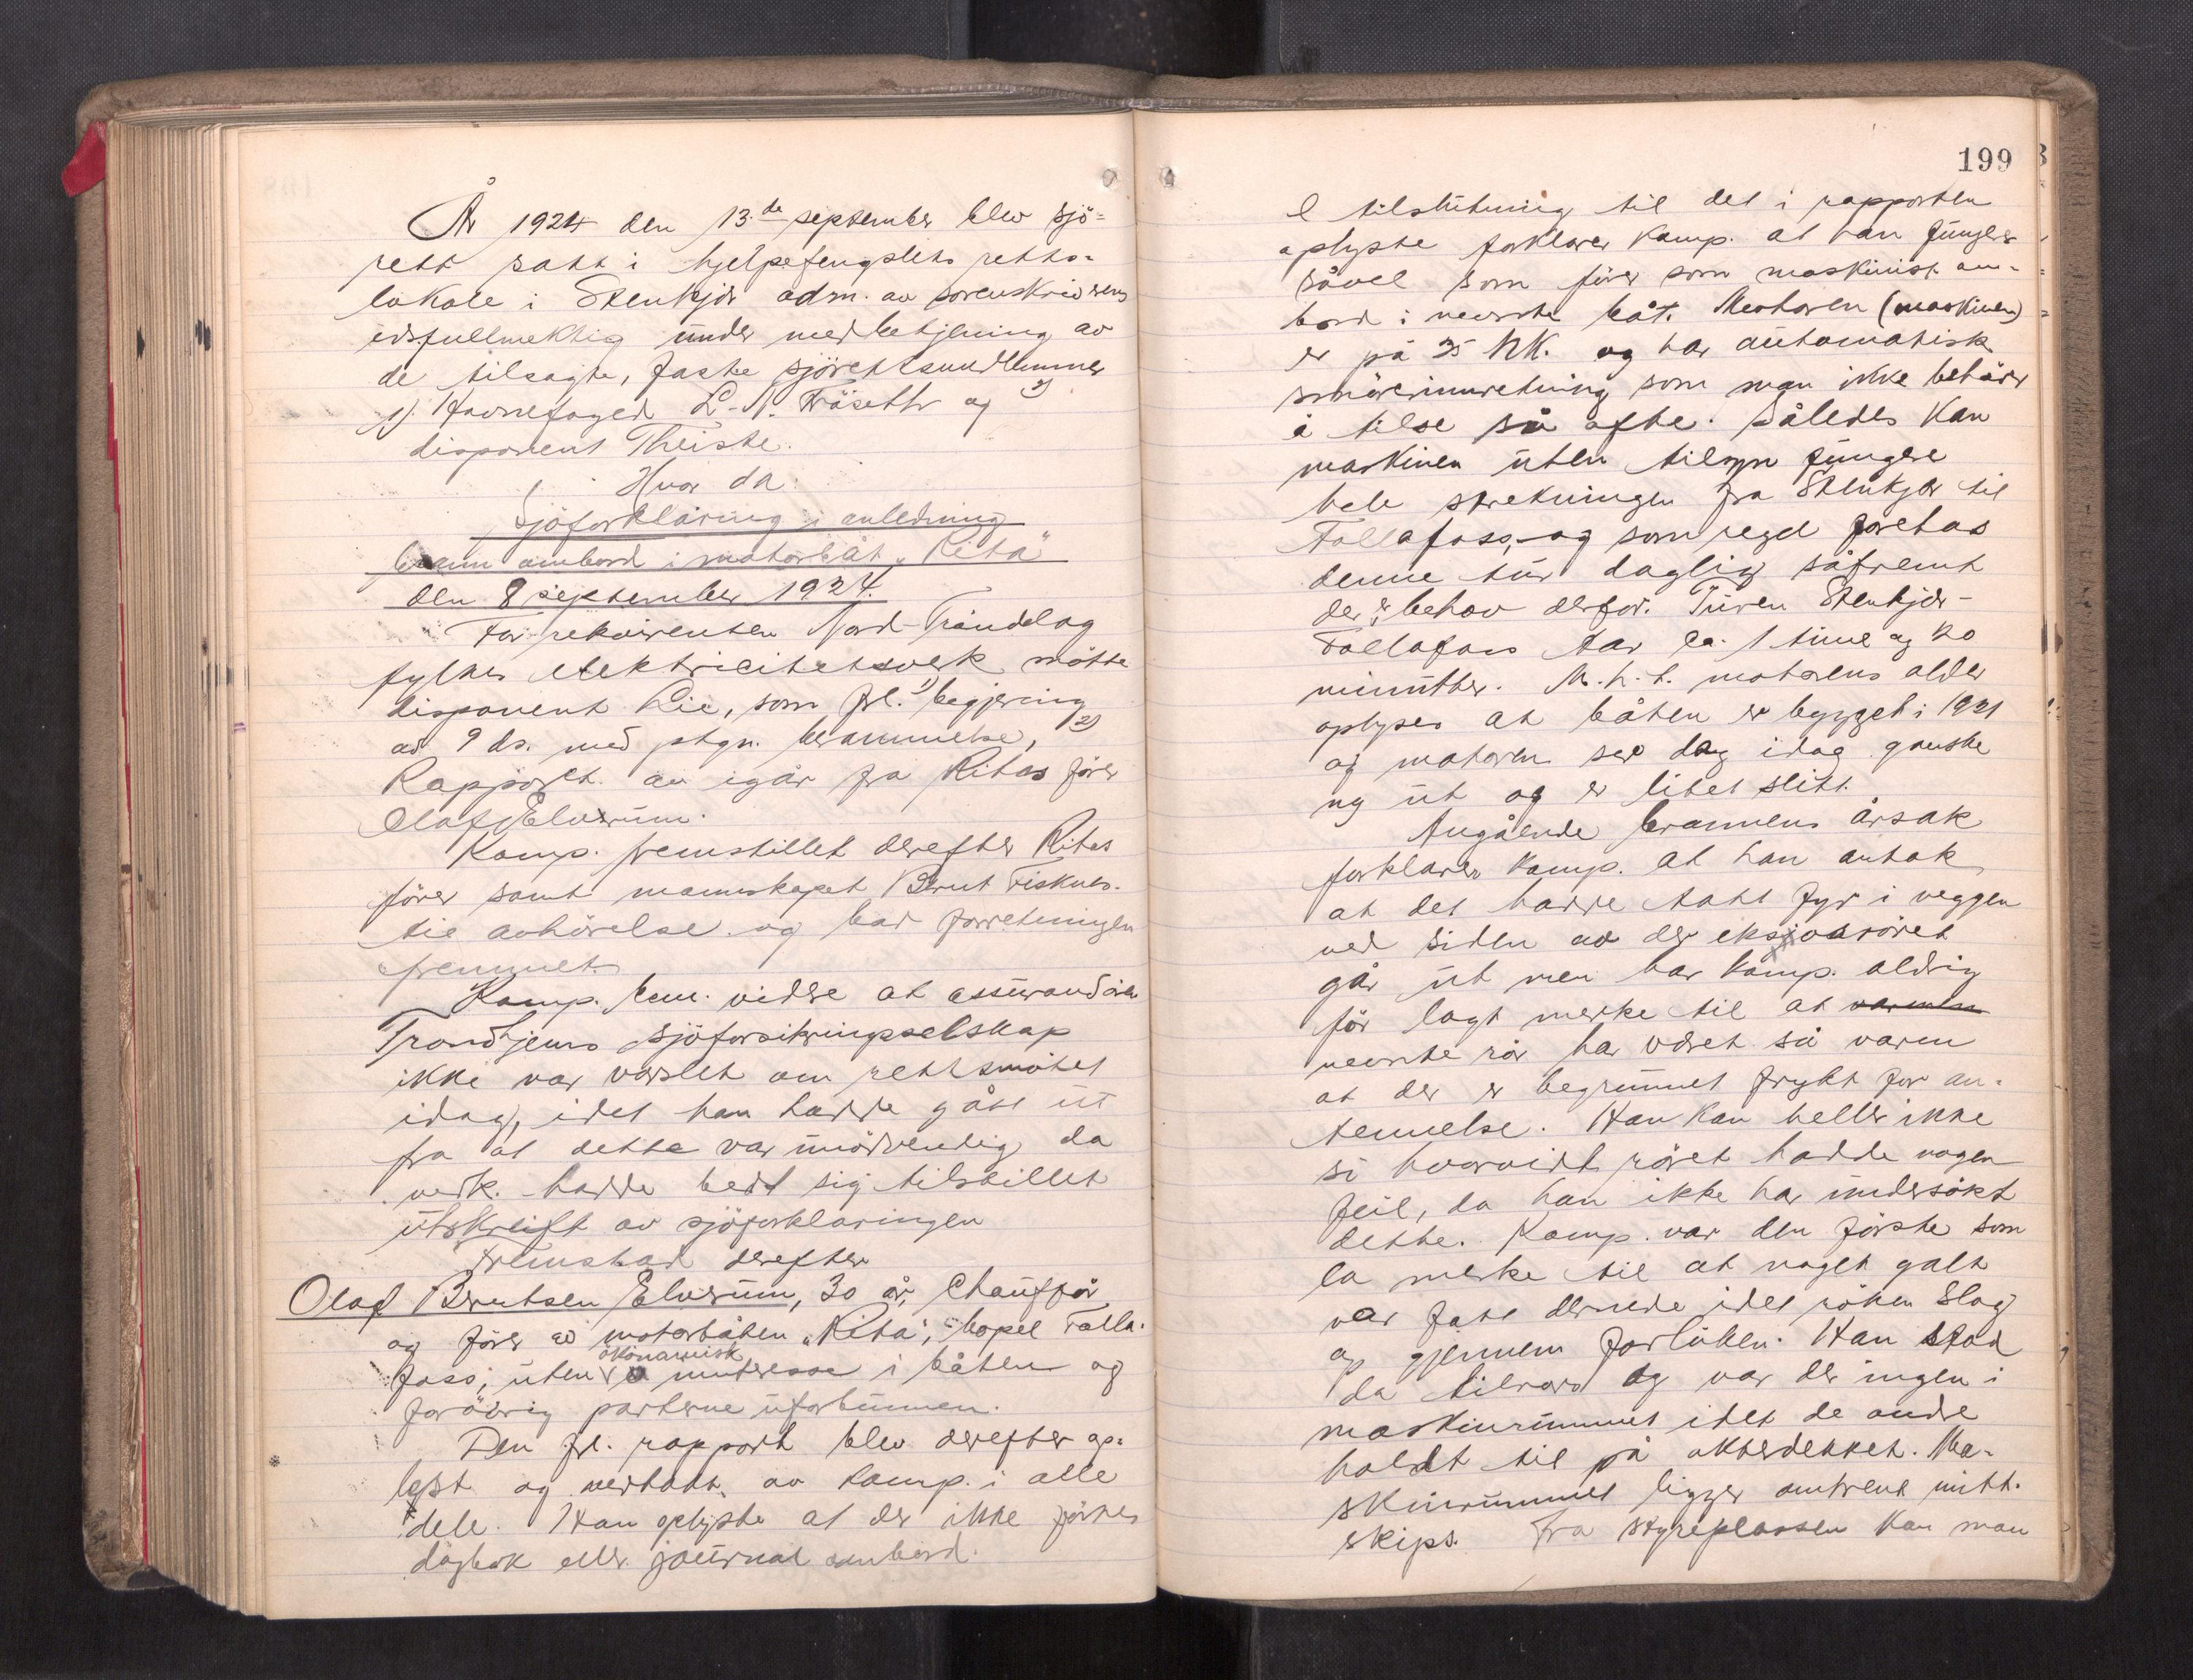 År 1924 den 13.de september blev sjö-
rett satt i hjelpefengslets retts-
lokale i Stenkjær adm. av sorenskriverens
edsfullmektig under medbetjening av
de tilsagte, faste sjörettsmedlemmer
1) havnefoged L. N. Fröseth og 2)
disponent Theiste.
Hvor da:
Sjöforklaring i anledning
brann ombord i motorbåt "Rita"
den 8 september 1924.
For rekvirenten Nord-Tröndelag
fylkes elektricitetsverk mötte
disponent Lie, som frl. 1) begjering
av 9 ds. med ptgn. berammelse, 2)
Rapport av igår fra Ritas förer
Olaf Elverum.
Komp. fremstillet derefter Ritas
förer samt mannskapet Bernt Fisknes
til avhörelse og bad forretningen
fremmet.
Komp. bem. videre at assurandören
Trondhjems Sjöforsikringsselskap
ikke var varslet om rettsmötet
idag, idet han hadde gått ut
fra at dette var unödvendig da
vedk. hadde bedt sig tilstillet
utskrift av sjöforklaringen
Fremstod derefter
Olaf Berntsen Elverum, 30 år, Chaufför
og förer av motorbåten "Rita", bopel Folla-
foss, uten ökonomisk interesse i båten og
forövrig parterne uforbunnen.
Den frl. rapport blev derefter op-
lest og vedtatt av komp. i alle
dele. Han oplyste at der ikke föres
dagbok eller journal ombord.
199
I tilslutning til det i rapporten
oplyste forklarer komp. at han fungerer
såvel som förer som maskinist om-
bord i nevnte båt. Motoren (maskinen)
er på 25 HK. og har automatisk
smöreinnretning som man ikke behöver
å tilse så ofte. Således kan
maskinen uten tilsyn fungere
hele strekningen fra Stenkjær til
Follafoss, og som regel foretas
denne tur daglig såfremt
der er behov derfor. Turen Stenkjær-
Follafoss tar ca. 1 time og 20
minutter. M.h.t. motorens alder
oplyses at båten er bygget i 1921
og motoren ser dag idag ganske
ny ut og er litet slitt.
Angående brannens årsak
forklarer komp. at han antok
at det hadde tatt fyr i veggen
ved siden av der eksosröret
går ut men har komp. aldrig
för lagt merke til at varmen
nevnte rör har været så varm
at der er begrunnet frykt for an-
tennelse. Han kan heller ikke
si hvorvidt röret hadde nogen
feil, da han ikke har undersökt
dette. Komp. var den förste som
la merke til at noget galt
var fatt dernede idet röken slog
op gjennem forluken. Han stod
da tilrors og var der ingen i
maskinrummet idet de andre
holdt til på akterdekket. Ma-
skinrummet ligger omtrent mitt-
skips. Fra styreplassen kan man